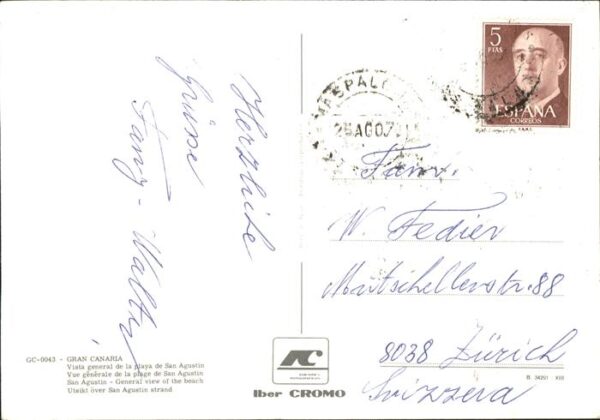 Herzliche
Grüsse
Fany - Walter
GC-0043 - GRAN CANARIA
Vista general de la playa de San Agustin
Vue générale de la plage de San Agustin
San Agustin - General view of the beach
Utsikt över San Agustin strand
Iber CROMO
5
PTAS
ESPAÑA
CORREOS
MASPALO
25 AGO 7
Fam.
W. Fedier
Mutschellenstr. 88
8038 Zürich
Svizzera